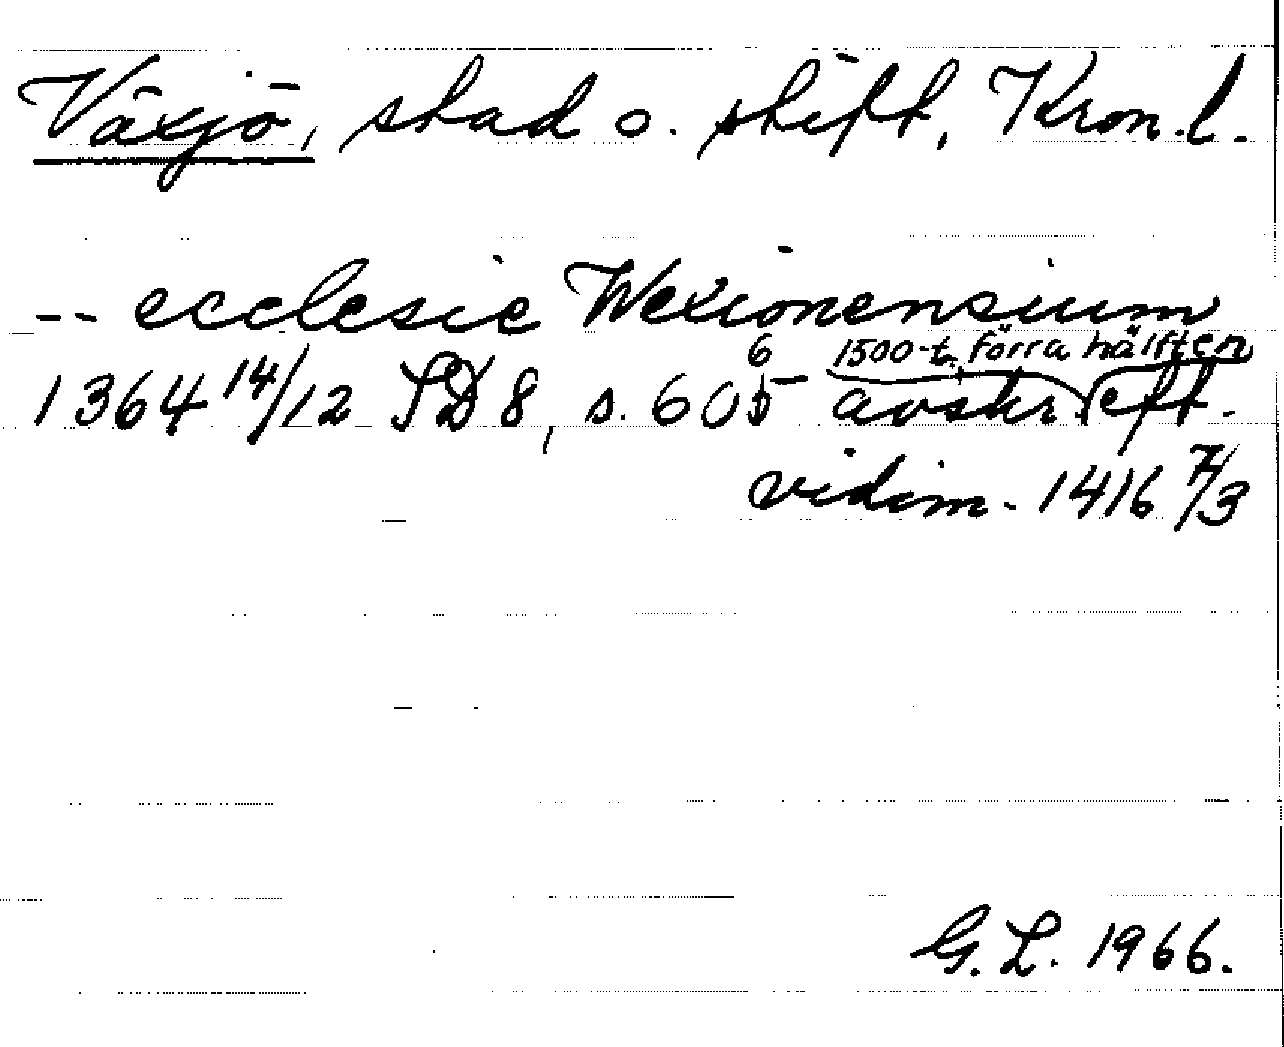 Växjö, stad o. stift, Kron.l.
-- ecclesie Wexionensium
6 1500-t. förra hälften
1364 14/12 SD 8, s. 605 avskr. eft.
vidim. 1416 7/3
G. L. 1966.